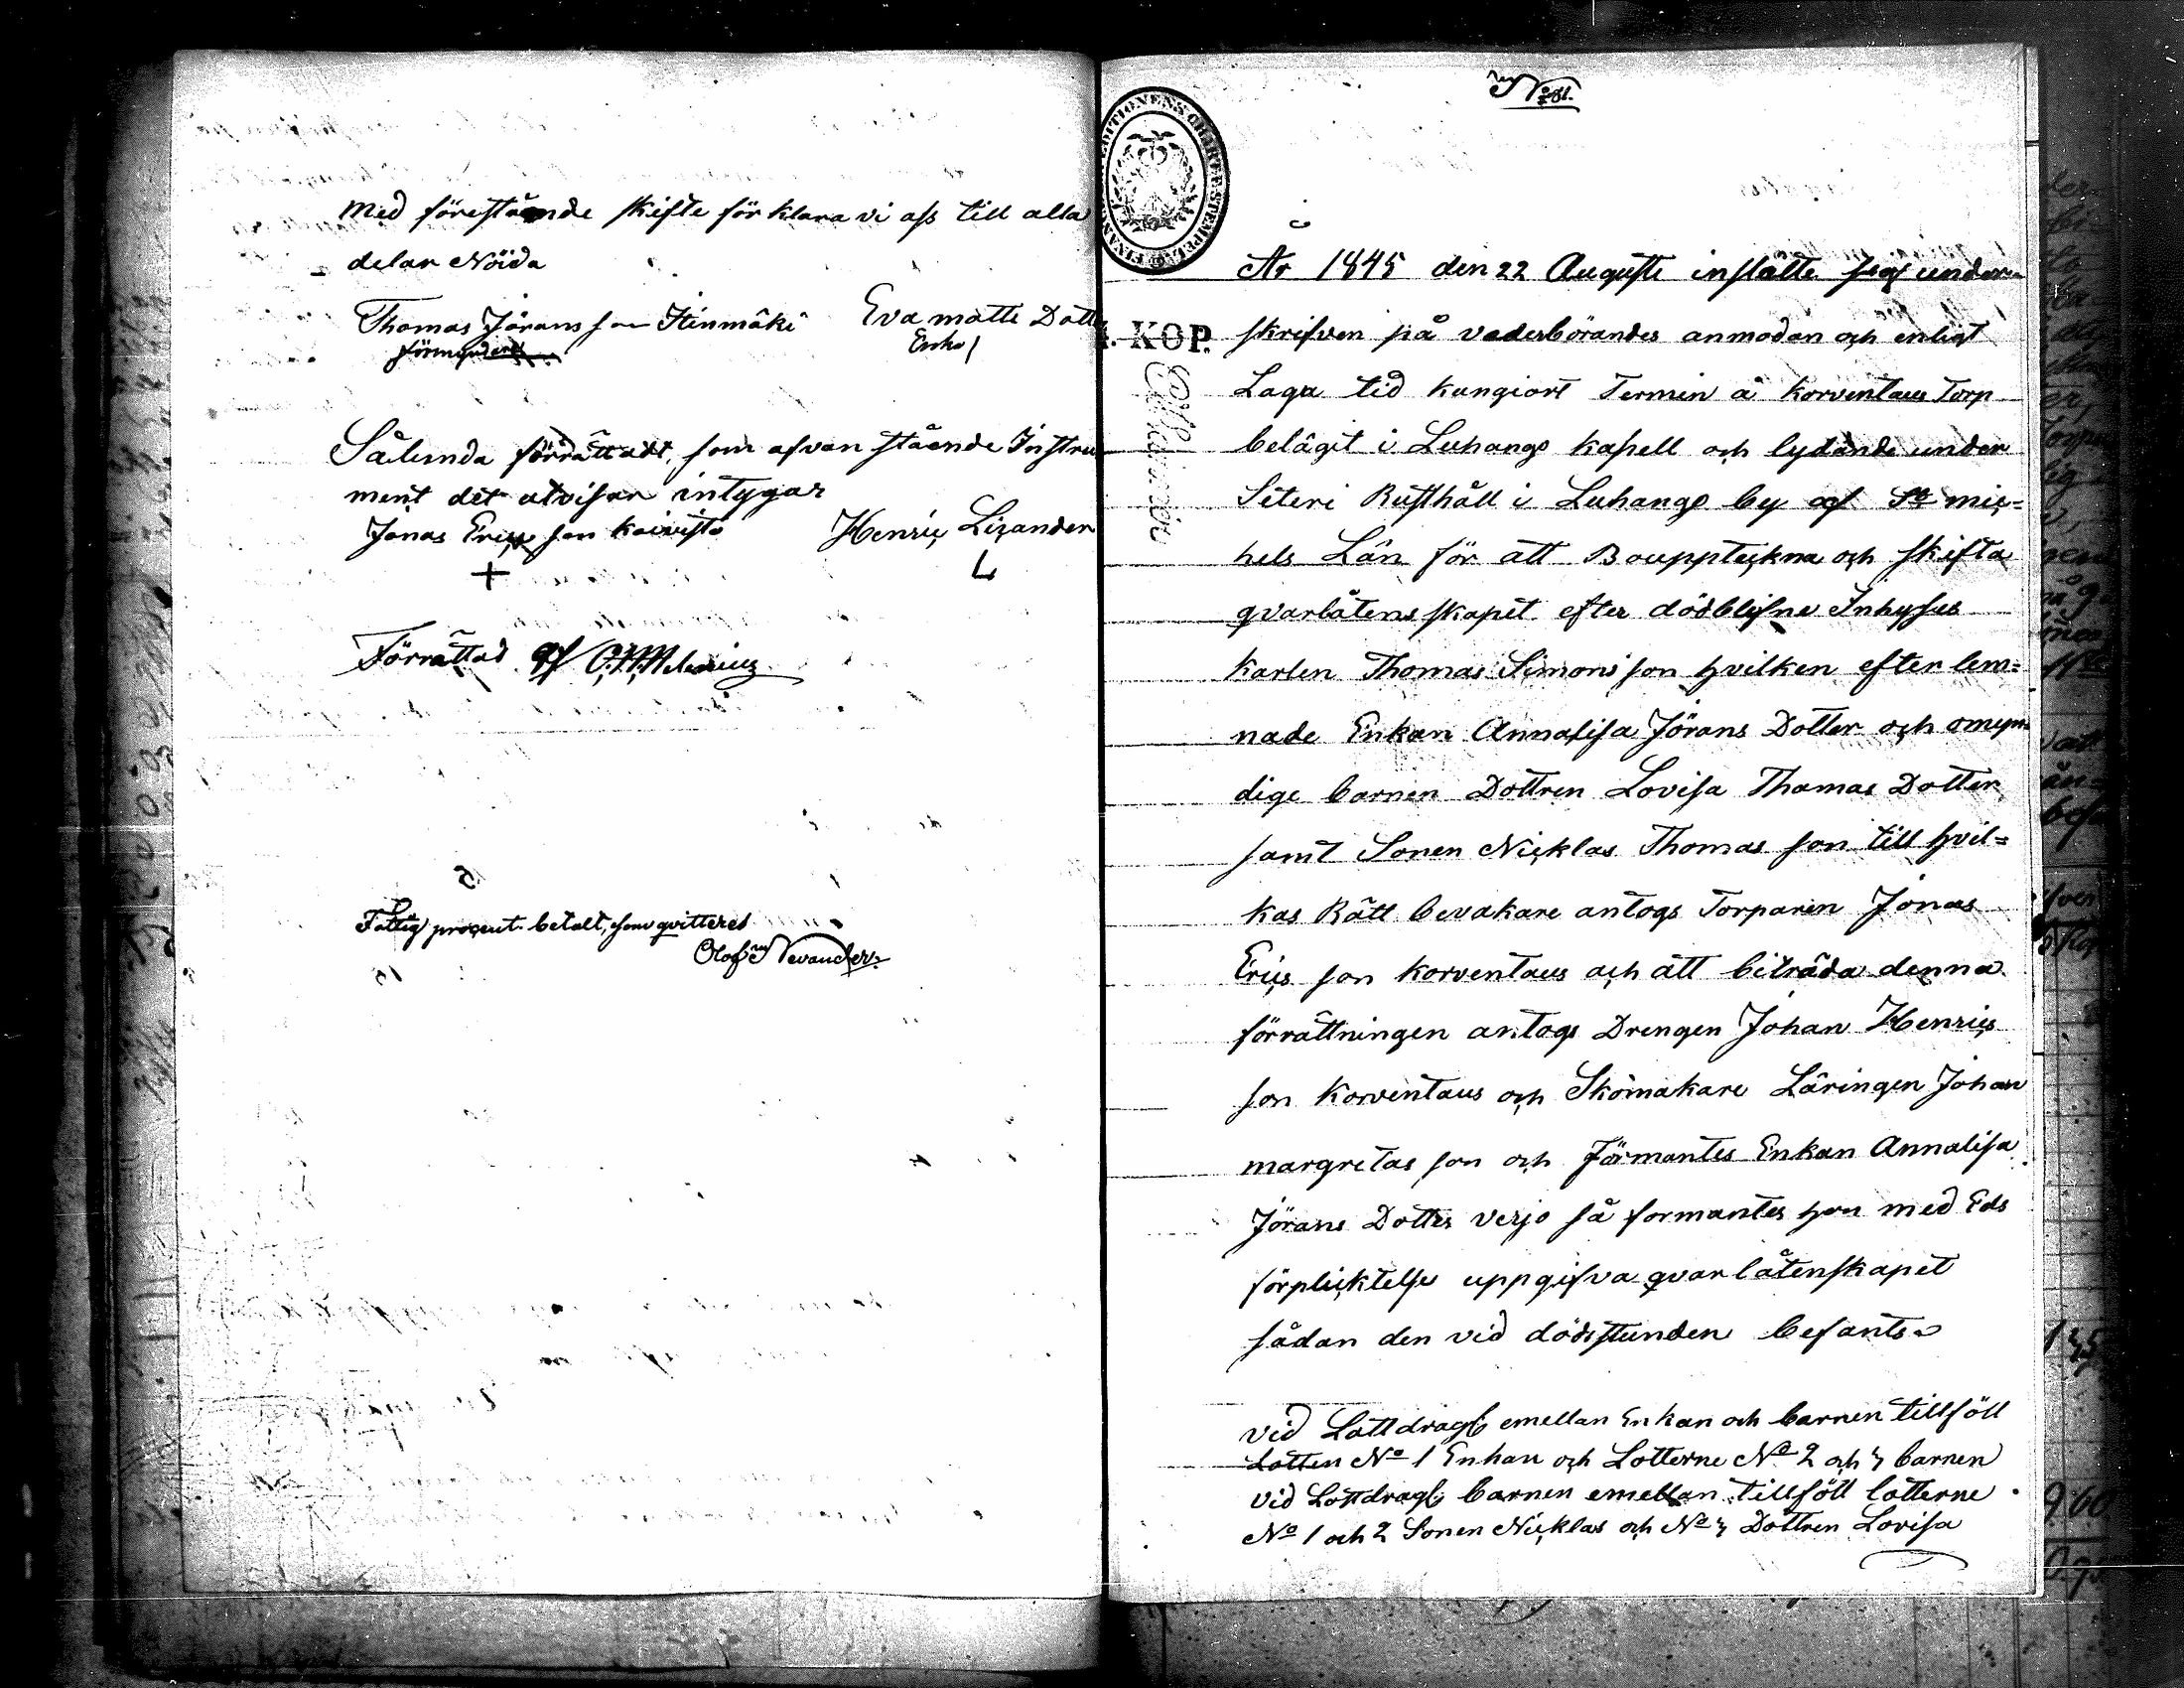 Med förestående skifte förklara vi oss till alla
delar Nöida
Thomas Jöransson Stenmäki Eva matts Dotter
förmyndere Enka
Sålunda förrättadt, som ofvan stående Instru
ment det utvisar intygar
Jonas Ericsson Koivisto Henric Lizander
+ L
Förrättad af
Fattig procent betalt, som qvitteras
Olof Nevander
No 281.
FINANS EXPEDITIONENS CHARTE STEMPEL
År 1845 den 22 Augusti instälte jag under-
KOP. skrifven på vederbörandes anmodan och enligt
Laga tid kungiort Termin å Korventaus Torp
belägit i Luhango kapell och lydande under
Säteri Rusthåll i Luhango by af St mic=
hels Län för att Bouppteckna och skifta
qvarlåtenskapet efter dödblifne Inhyses
karlen Thomas Simonsson hvilken efter lem=
nade Enkan Annalisa Jörans Dotter och omyn
dige barnen Dottren Lovisa Thomas Dotter
samt Sonen Nicklas Thomas son till hvil=
kas Rätt bevakare antogs Torparen Jonas
Erics son Korventaus och att biträda denna
förrättningen antogs Drengen Johan Henrics
son Korventaus och Skomakare Läringen Johan
margretas son och Förmantes Enkan Annalisa
Jörans Dotter Verjo så formantes hon med Eds
förplicktelse uppgifva qvarlåtenskapet
sådan den vid dödsstunden befants
vid Lottdragg emellan Enkan och barnen tillföll
Lotten No 1 Enkan och Lotterne No 2 och 3 barnen
vid Lottdragg barnen emellan tillföll lotterne
No 1 och 2 Sonen Nicklas och No 3 Dottren Lovisa